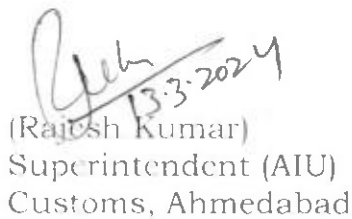 13.3.2024
(Rajesh Kumar)
Superintendent (AIU)
Customs, Ahmedabad